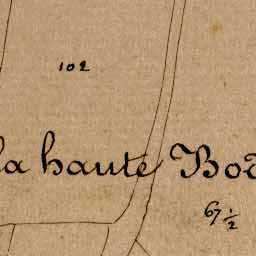 102
la haute
67 ½